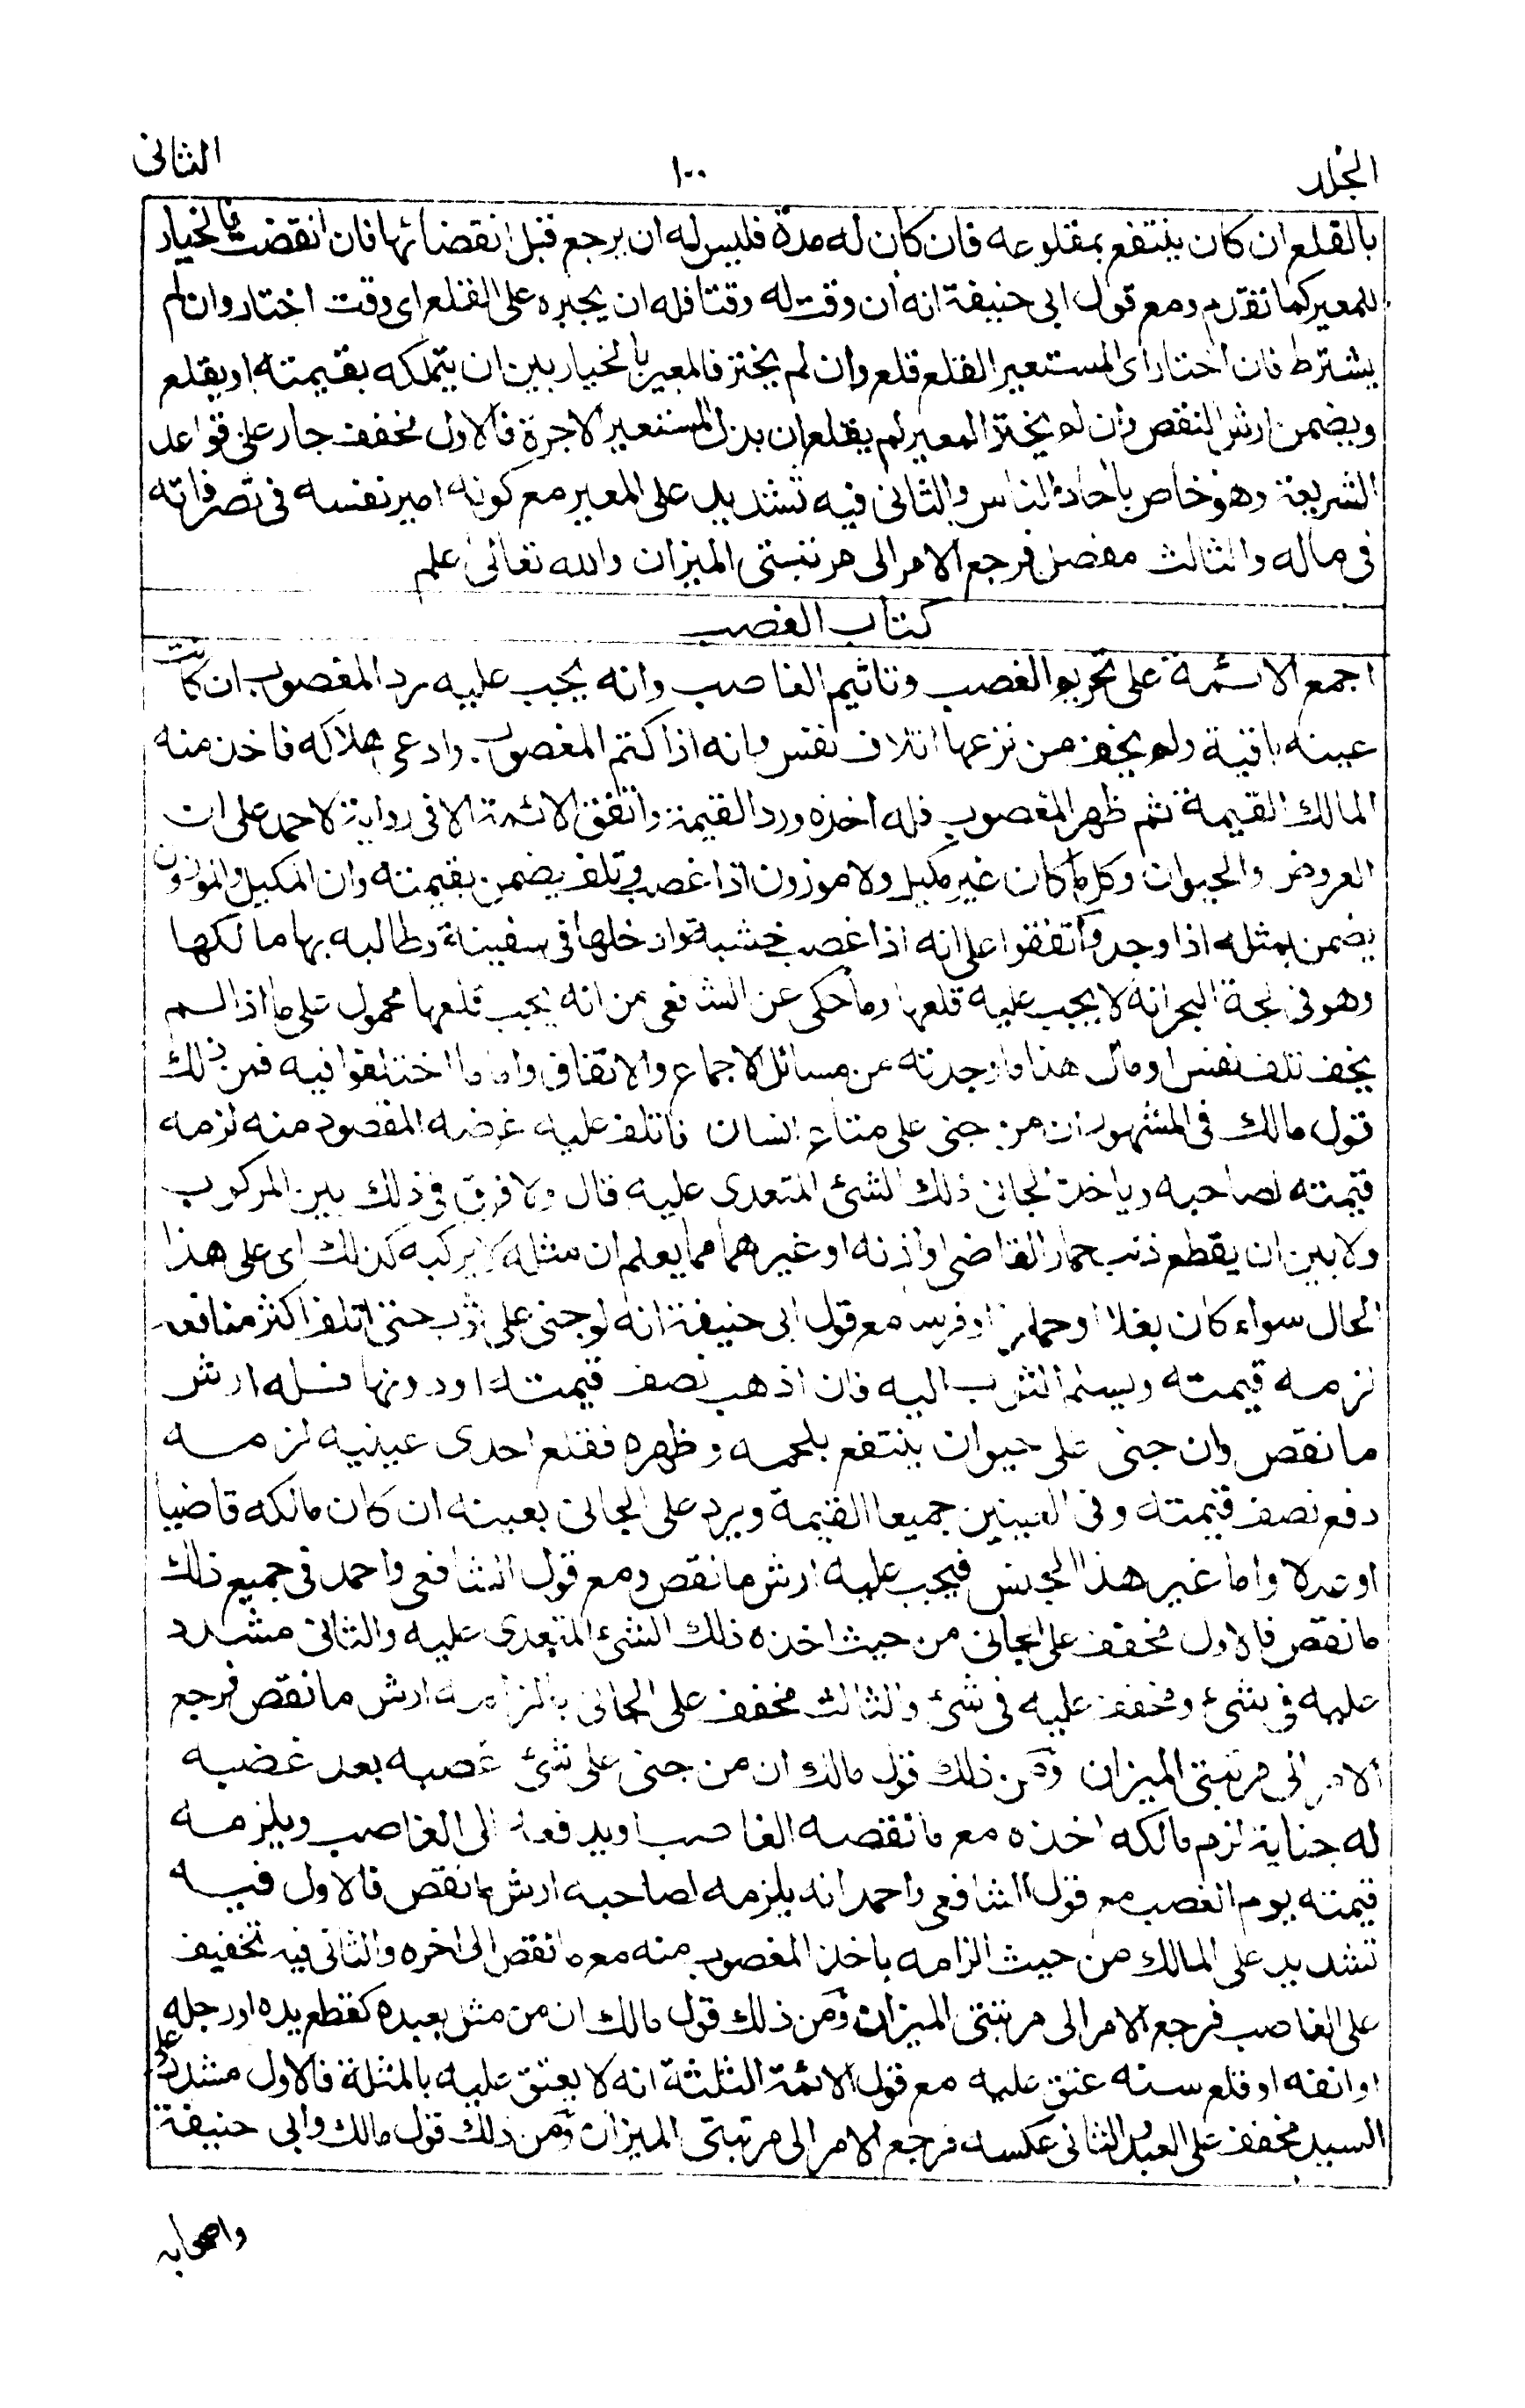 المجلد
١٠٠
الثانى
بالقلع ان كان ينتفع بمقلوعه فان كان له مدة فليس له ان يرجع قبل انقضائها فان انقضت فالخيار
للمعير كما تقدم ومع قول ابى حنيفة انه ان وقت له وقتا فله ان يجبره على القلع اى وقت اختار وان لم
يشترط فان اختار اى المستعير القلع قلع وان لم يختر فالمعير بالخيار بين ان يتملكه بقيمته او يقلع
ويضمن ارش النقص وان لم يختر المعير لم يقلع ان بذل المستعير الاجرة فالاول مخفف جار على قواعد
الشريعة وهو خاص بآحاد الناس والثانى فيه تشديد على المعير مع كونه امير نفسه فى تصرفاته
فى ماله والثالث مفصل فرجع الامر الى مرتبتى الميزان والله تعالى اعلم
كتاب الغصب
اجمع الائمة على تحريم الغصب وتاثيم الغاصب وانه يجب عليه رد المغصوب ان كانت
عينه باقية ولم يخف من نزعها اتلاف نفس وانه اذا كتم المغصوب وادعى هلاكه فاخذ منه
المالك القيمة ثم ظهر المغصوب فله اخذه ورد القيمة واتفق الائمة الا فى رواية لاحمد على ان
العروض والحيوان وكل ما كان غير مكيل ولا موزون اذا غصب وتلف يضمن بقيمته وان المكيل والموزون
يضمن بمثله اذا وجد واتفقوا على انه اذا غصب خشبة وادخلها فى سفينة وطالبه بها مالكها
وهو فى لجة البحر انه لا يجب عليه قلعها وما حكى عن الشافعى من انه يجب قلعها محمول على ما اذا لم
يخف تلف نفس او مال هذا ما وجدته من مسائل الاجماع والاتفاق واما ما اختلفوا فيه فمن ذلك
قول مالك فى المشهور ان من جنى على متاع انسان فاتلف عليه غرضه المقصود منه لزمه
قيمته لصاحبه وياخذ الجانى ذلك الشئ المتعدى عليه قال ولا فرق فى ذلك بين المركوب
ولا بين ان يقطع ذنب حمار القاضى او اذنه او غيرهما مما يعلم ان مثله لا يركبه كذلك اى على هذا
الحال سواء كان بغلا او حمارا او فرسا مع قول ابى حنيفة انه لو جنى على ثوب حتى اتلف اكثر منافعه
لزمه قيمته ويسلم الثوب اليه فان اذهب نصف قيمته او دونها فله ارش
ما نقص وان جنى على حيوان ينتفع بلحمه وظهره فقلع احدى عينيه لزمه
دفع نصف قيمته وفى العينين جميعا القيمة ويرد على الجانى بعينه ان كان مالكه قاضيا
او عدلا واما غير هذا الجنس فيجب عليه ارش ما نقص ومع قول الشافعى واحمد فى جميع ذلك
ما نقص فالاول مخفف على الجانى من حيث اخذه ذلك الشئ المتعدى عليه والثانى مشدد
عليه فى شئ ومخفف عليه فى شئ والثالث مخفف على الجانى بالزامه ارش ما نقص فرجع
الامر الى مرتبتى الميزان ومن ذلك قول مالك ان من جنى على شئ غصبه بعد غصبه
له جناية لزم مالكه اخذه مع ما نقصه الغاصب او يدفعه الى الغاصب ويلزمه
قيمته يوم الغصب مع قول الشافعى واحمد انه يلزمه لصاحبه ارش ما نقص فالاول فيه
تشديد على المالك من حيث الزامه باخذ المغصوب منه مع ما نقص الى اخره والثانى فيه تخفيف
على الغاصب فرجع الامر الى مرتبتى الميزان ومن ذلك قول مالك ان من مثل بعبده كقطع يده او رجله
او انفه او قلع سنه عتق عليه مع قول الائمة الثلثة انه لا يعتق عليه بالمثلة فالاول مشدد على
السيد مخفف على العبد والثانى عكسه فرجع الامر الى مرتبتى الميزان ومن ذلك قول مالك وابى حنيفة
واصحابه